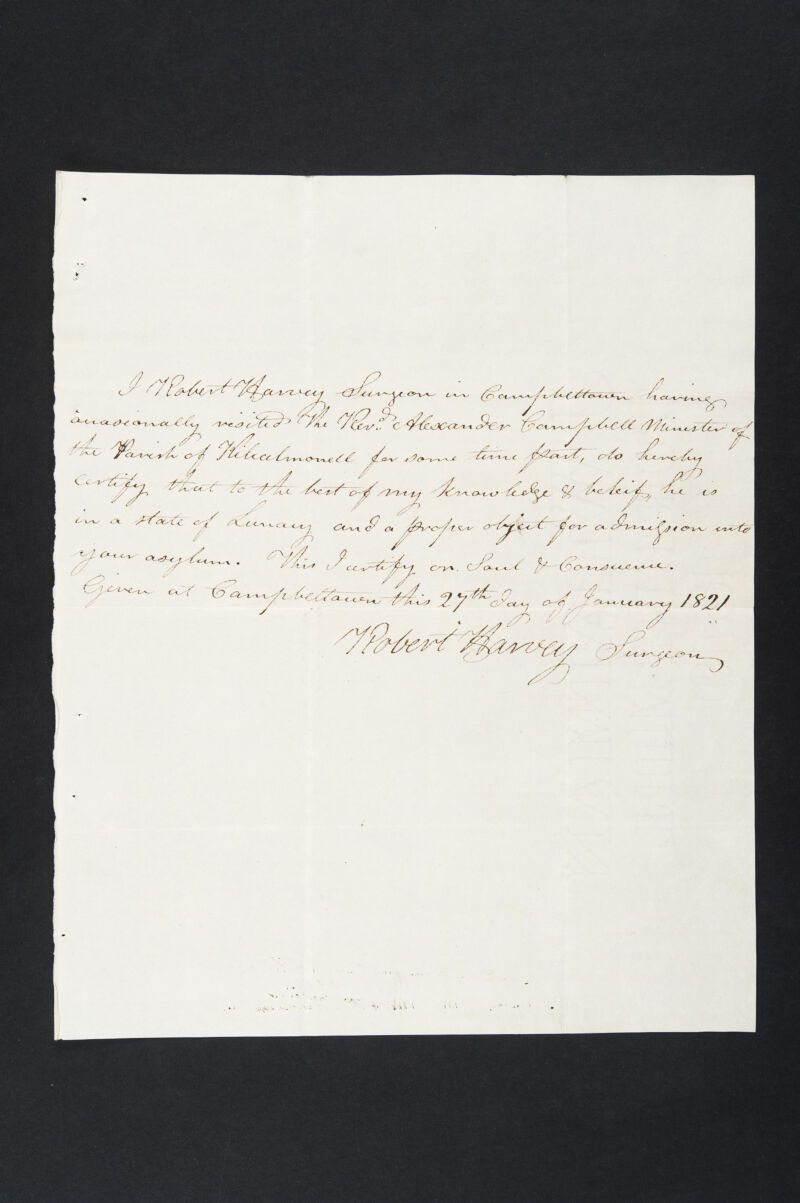 I Robert Harvey Surgeon in Campbeltown having
occasionally visited The Revd. Alexander Campbell Minister of
the Parish of Kilcalmonell for some time past, do hereby
certify that to the best of my knowledge & beleif, he is
in a state of Lunacy and a proper object for admission into
your asylum. This I certify on Soul & Conscience.
Given at Campbeltown this 27th day of January 1821
Robert Harvey Surgeon